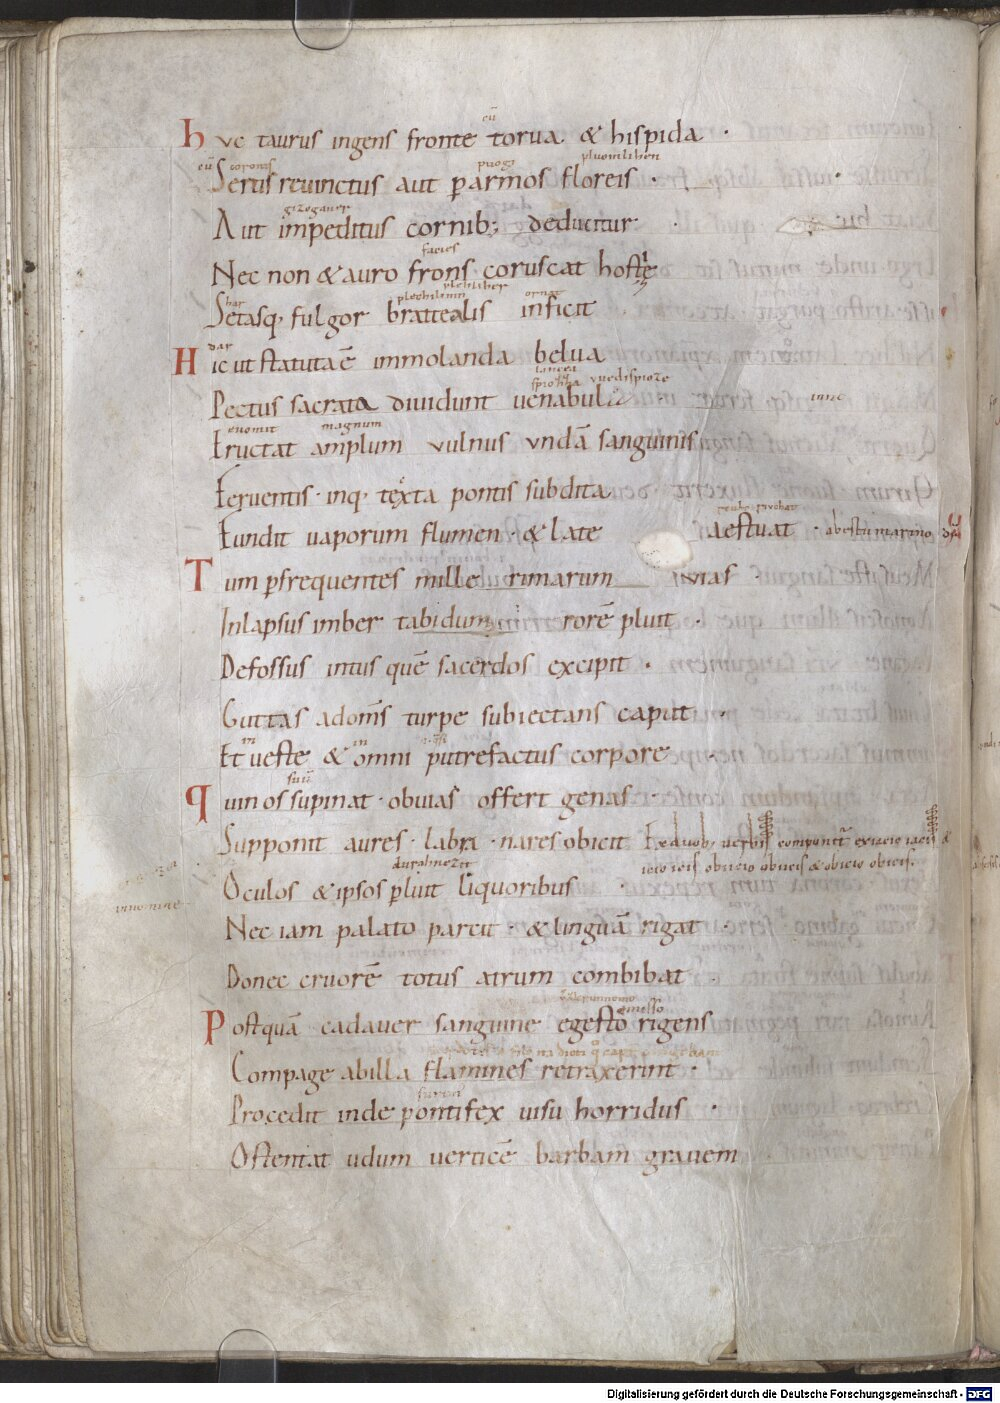 Huc taurus ingens fronte torua & hispida ·
Sertis reuinctus aut p armos floreis ·
Aut impeditus cornib; deducitur
Nec non & auro frons coruscat hostie
Setasq; fulgor brattealis inficit
Hic ut statuta ē immolanda belua
Pectus sacrata diuidunt uenabula
Eructat amplum vulnus vndā sanguinis
Feruentis · inq; texta pontis subdita
Fundit uaporum flumen · & late aestuat ·
Tum p frequentes mille rimarum uias ·
Inlapsus imber tabidum rorē pluit ·
Defossus intus quē sacerdos excipit ·
Guttas ad om̄s turpe subiectans caput ·
Et ueste & omni putrefactus corpore ·
quin os supinat · obuias offert genas ·
Supponit aures · labra · nares obicit
Oculos & ipsos pluit liquoribus ·
Nec iam palato parcit · & linguā rigat ·
Donec cruorē totus atrum combibat ·
Postquā cadauer sanguine egesto rigens
Compage ab illa flamines retraxerint ·
Procedit inde pontifex uisu horridus ·
Ostentat udum uerticē barbam grauem
Digitalisierung gefördert durch die Deutsche Forschungsgemeinschaft - DFG